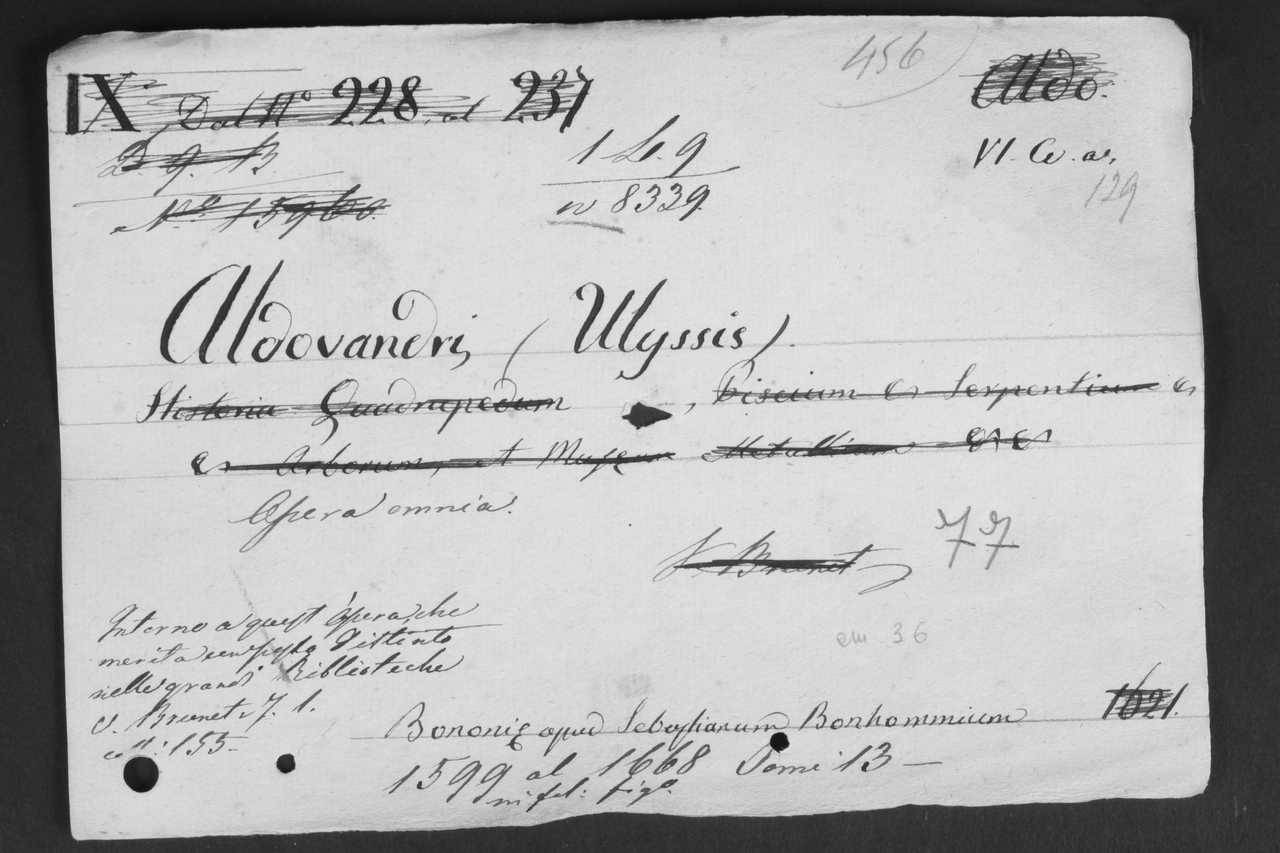 456
IX Dal N° 228. al 237
Aldo.
D. 9. 13.
1 L. 9
VI. C. a.
129
N.° 15960.
n 8339.
Aldovandri, (Ulyssis).
Historia Quadrupedum , Piscium & Serpentium &
& Arborum, et Musęum Metallicum & &
Opera omnia.
77
V. Brunet
Intorno a quest'opera, che
merita un posto distinto
nelle grandi Biblioteche
em 36
V. Brunet. T. 1.
col: 155-
1621.
Bononię apud Sebastianum Bonhommium
1599 al 1668 Tomi 13 —
in fol: fig.